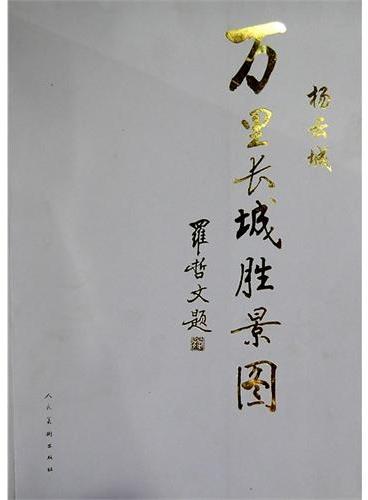 杨云城
万里长城胜景图
羅哲文题
人民美术出版社